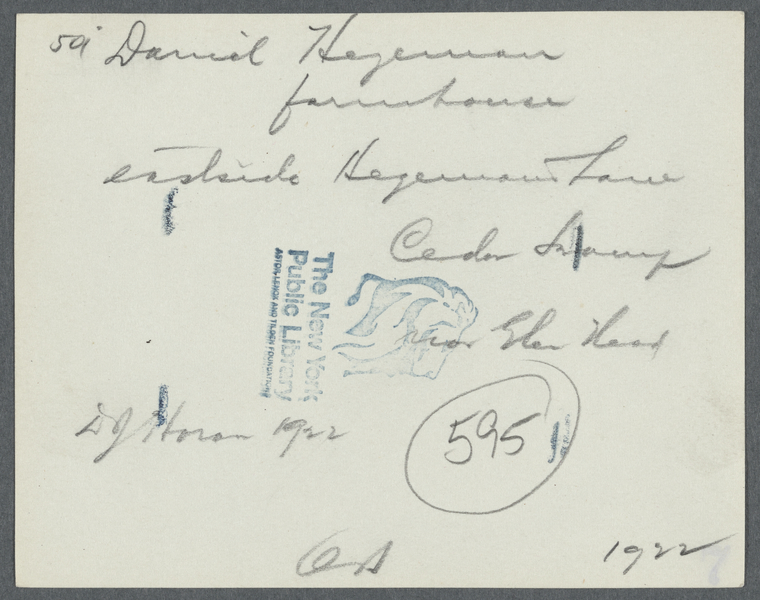 59 Daniel Hegeman
farmhouse
eastside Hegeman Lane
Cedar Swamp
near Glen Head
The New York
Public Library
ASTOR, LENOX AND TILDEN FOUNDATIONS
DJ Horan 1922
595
1922